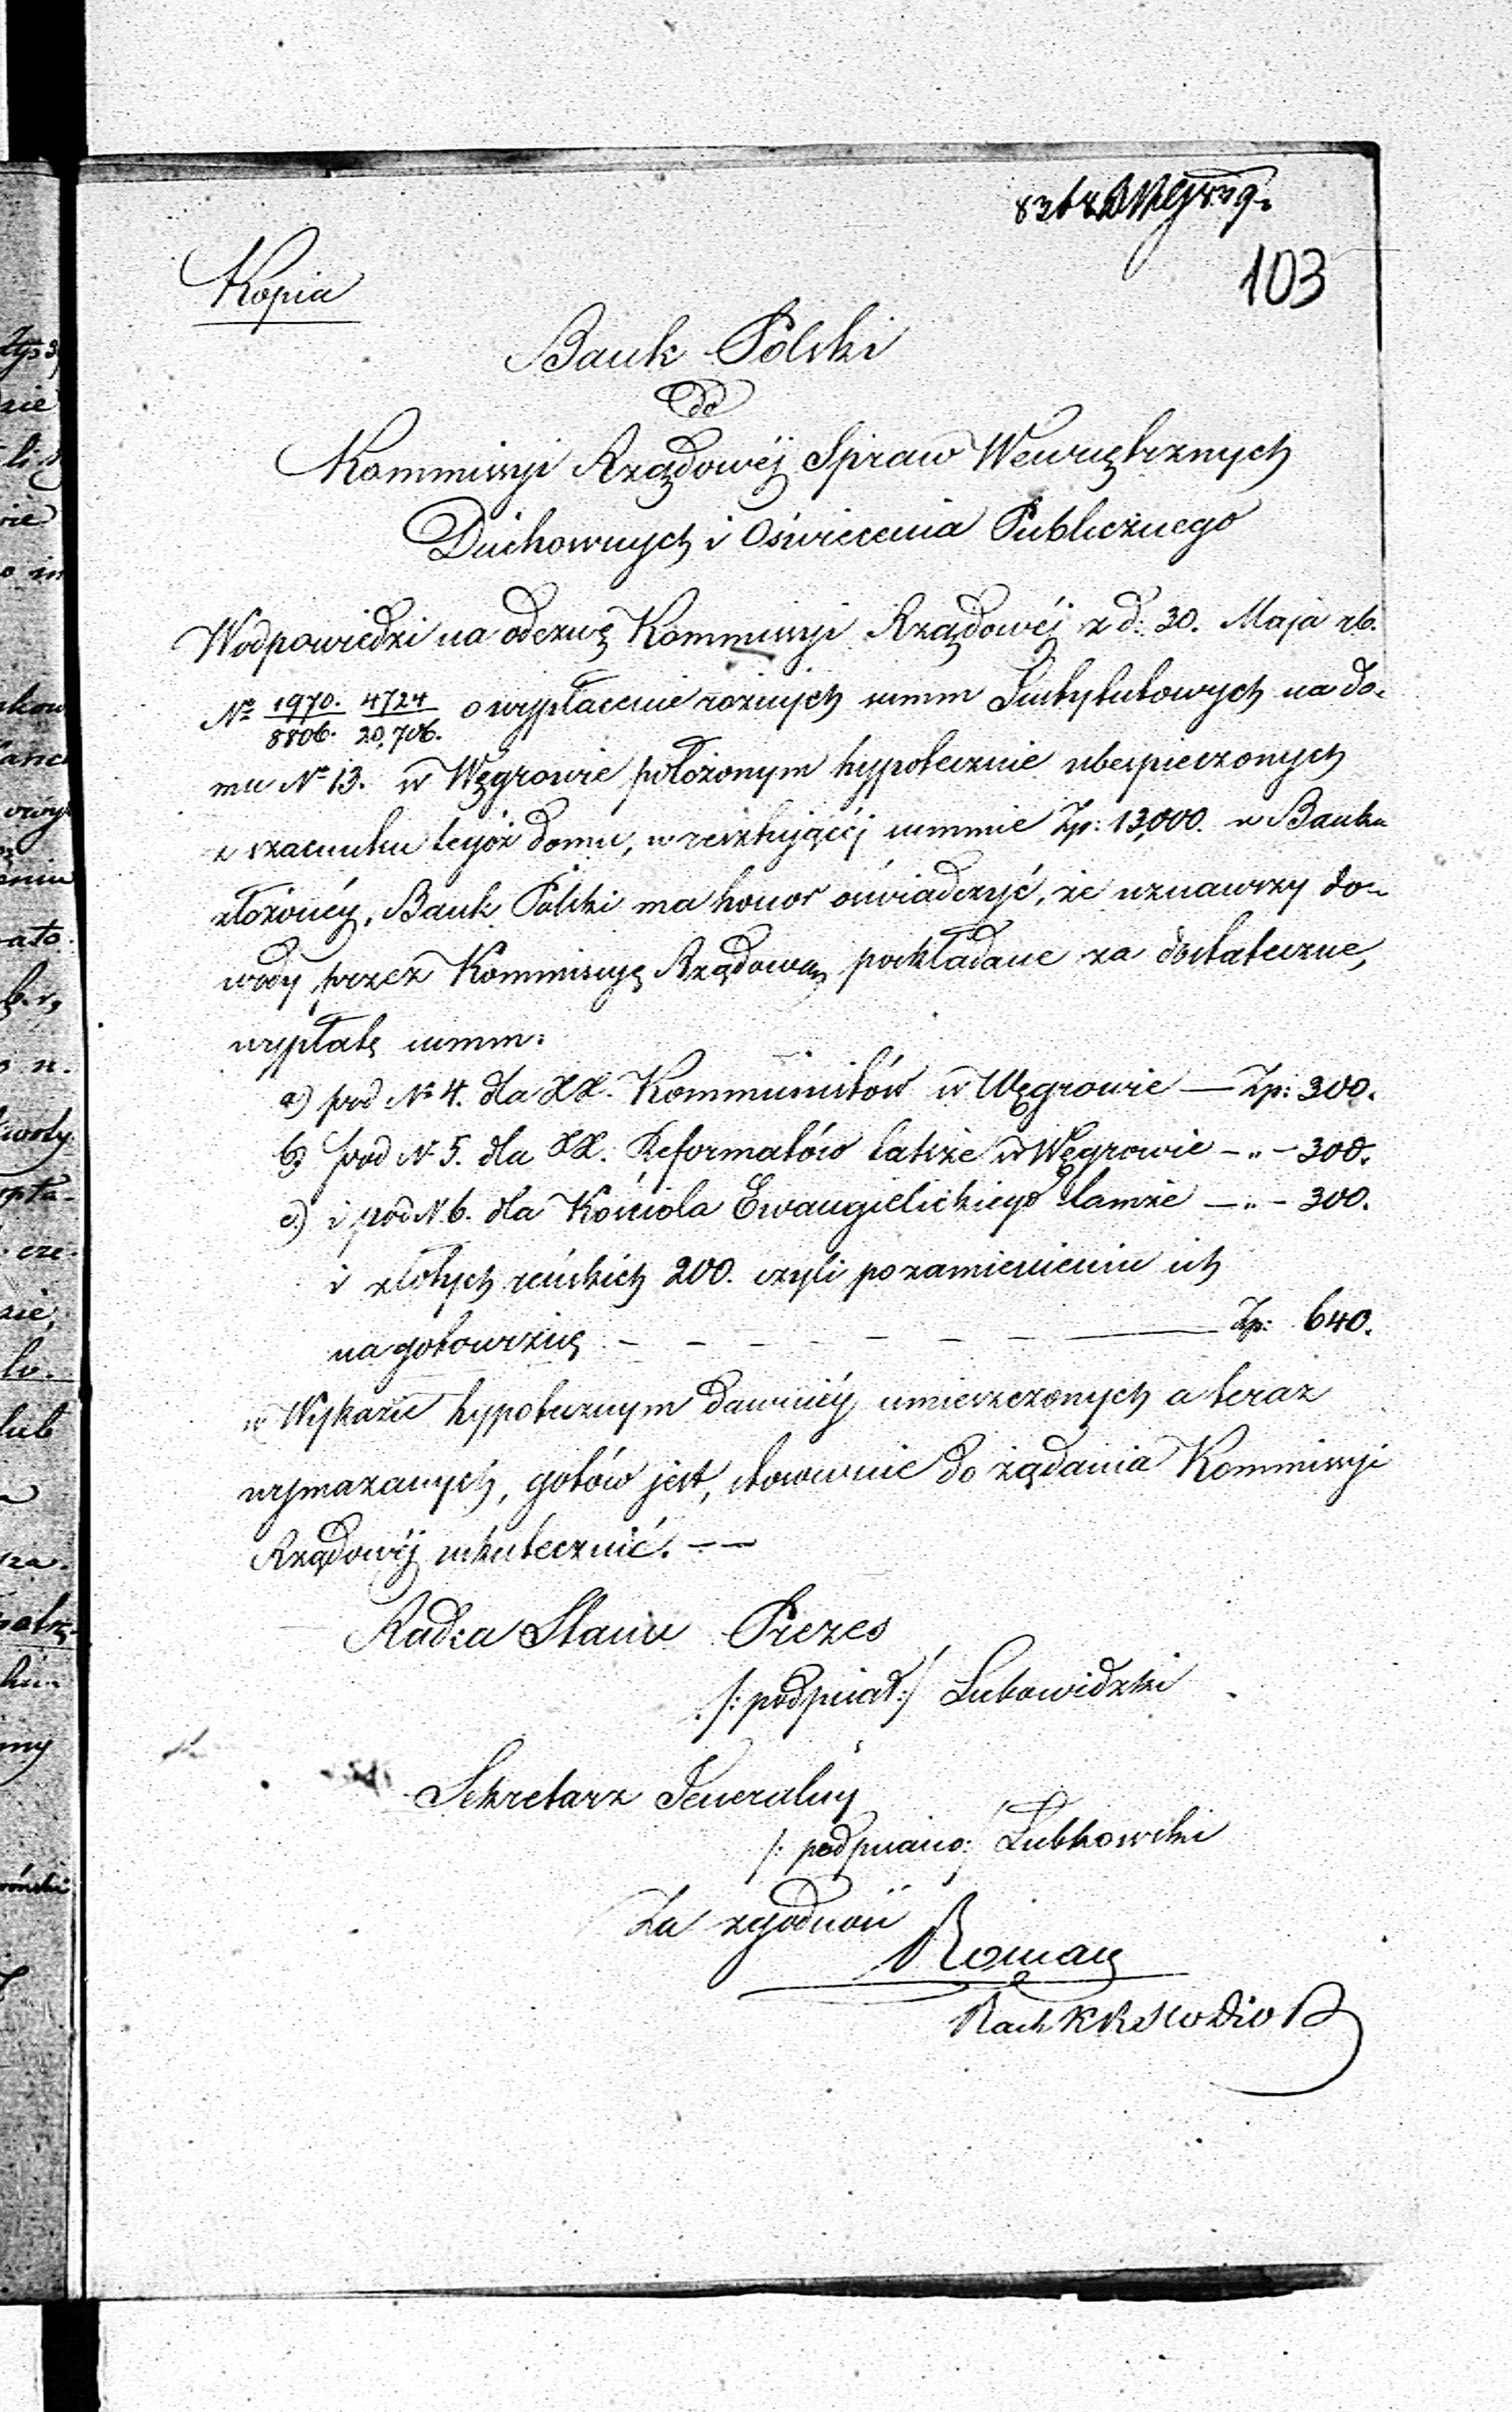 103
Kopia
Bank Polski
do
Kommissyi Rządowéj Spraw Wewnętrznych
Duchownych i Oświecenia Publicznego
W odpowiedzi na odezwę Kommissyi Rządowéj z d: 30. Maja rb.
№ 1970. 4724
8806. 20,706. o wypłacenie roźnych summ Instytutowych na do-
mu № 13. w Węgrowie położonym hypotecznie ubespieczonych
z szacunku tegóż domu, w resztującéj summie Zp: 13,000. w Banku
złożonéy, Bank Polski ma honor oświadczyć, że uznawszy do-
wody przez Kommissyę Rządową pokładane za dostateczne,
wypłatę summ:
a) pod № 4. dla XX. Kommunistów w Węgrowie — Zp: 300.
b) pod N 5. dla XX. Reformatów także w Węgrowie — „ — 300.
c) i pod N 6. dla Kościoła Ewangielickiego tamże — „ — 300.
i złotych reńskich 200. czyli po zamienieniu ich
na gotowiznę - - - - - - — Zp: 640.
w Wykazie hypotecznym dawniéy umieszczonych a teraz
wymazanych, gotów jest, stosownie do żądania Kommissyi
Rządowéj uskutecznić. — —
Radca Stanu Prezes
/: podpisał :/ Lubowidzki
Sekretarz Generalny
/: podpisano :/ Lubkowski
Za zgodność
Roman